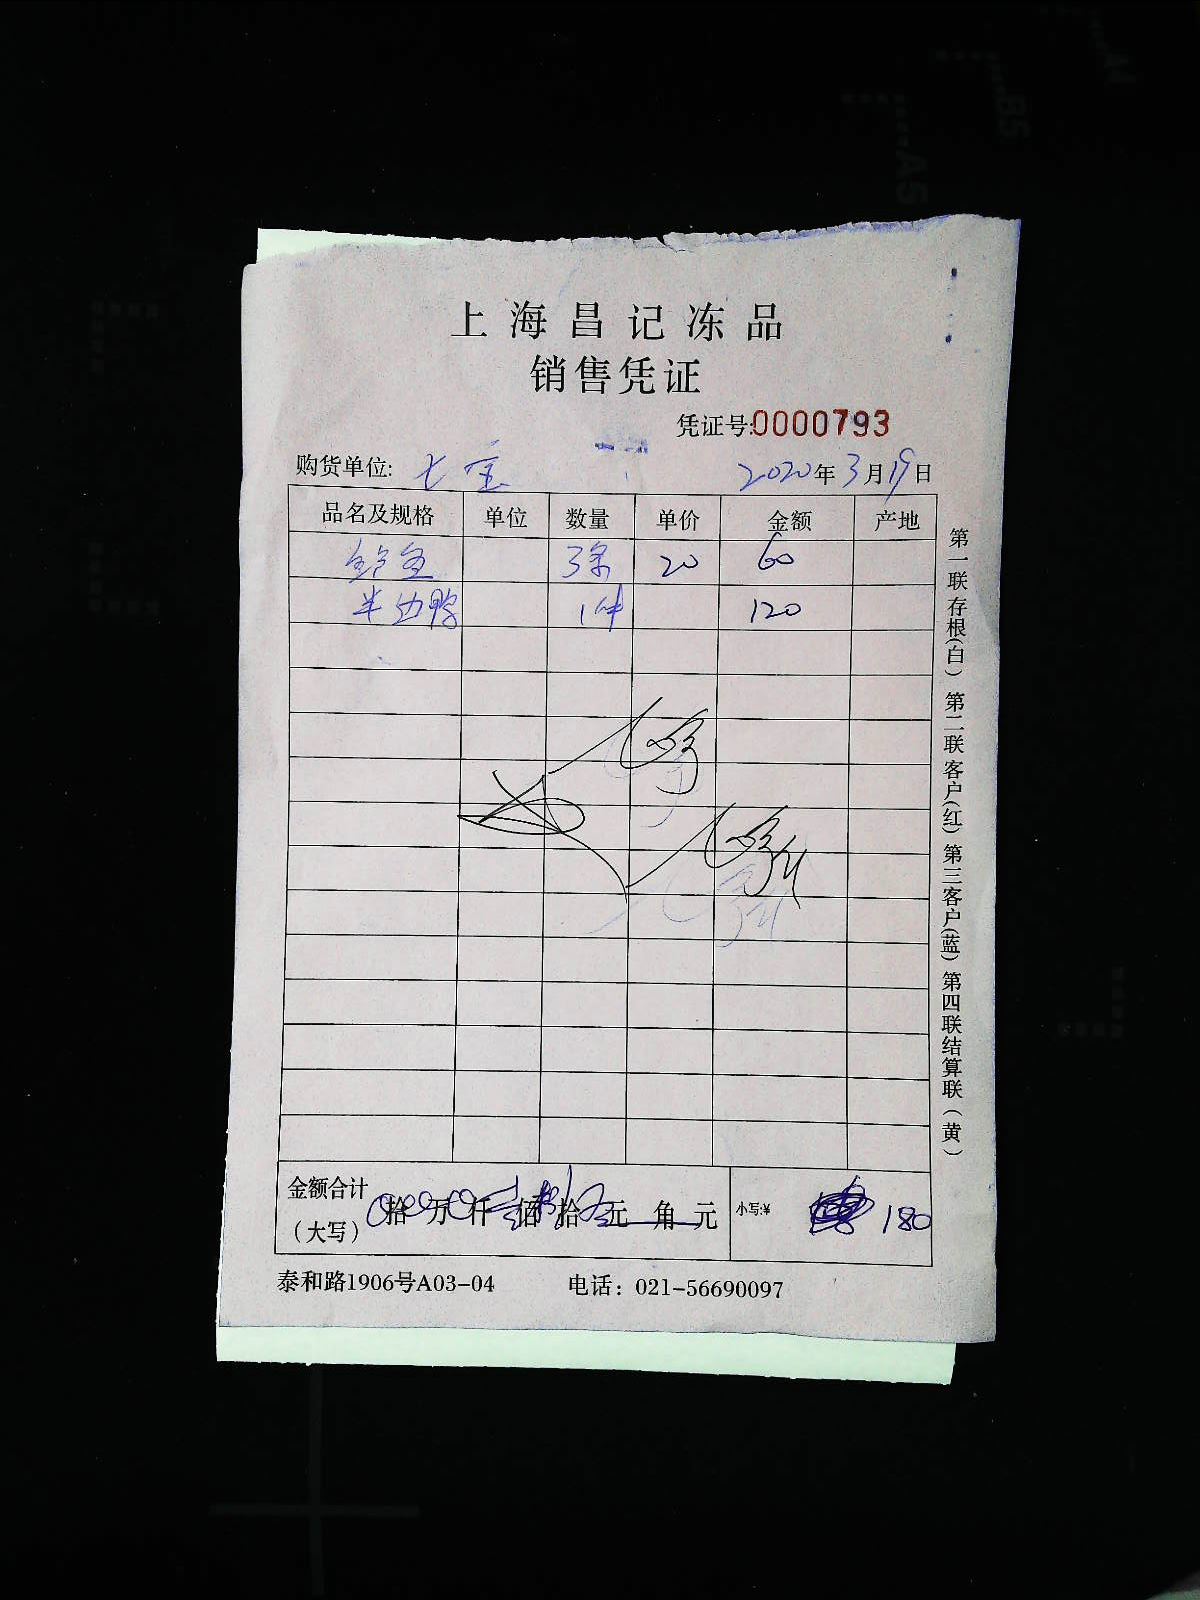 上海昌记冻品
销售凭证
凭证号:0000793
购货单位: 七宝 2020年3月19日
品名及规格 单位 数量 单价 金额 产地
3条 20 60
半边鸭 1件 120
金额合计 拾 万 仟 佰 拾 元 角 元 小写:¥ 180
（大写）
泰和路1906号A03-04 电话：021-56690097
第一联存根(白) 第二联客户(红) 第三客户(蓝) 第四联结算联(黄)